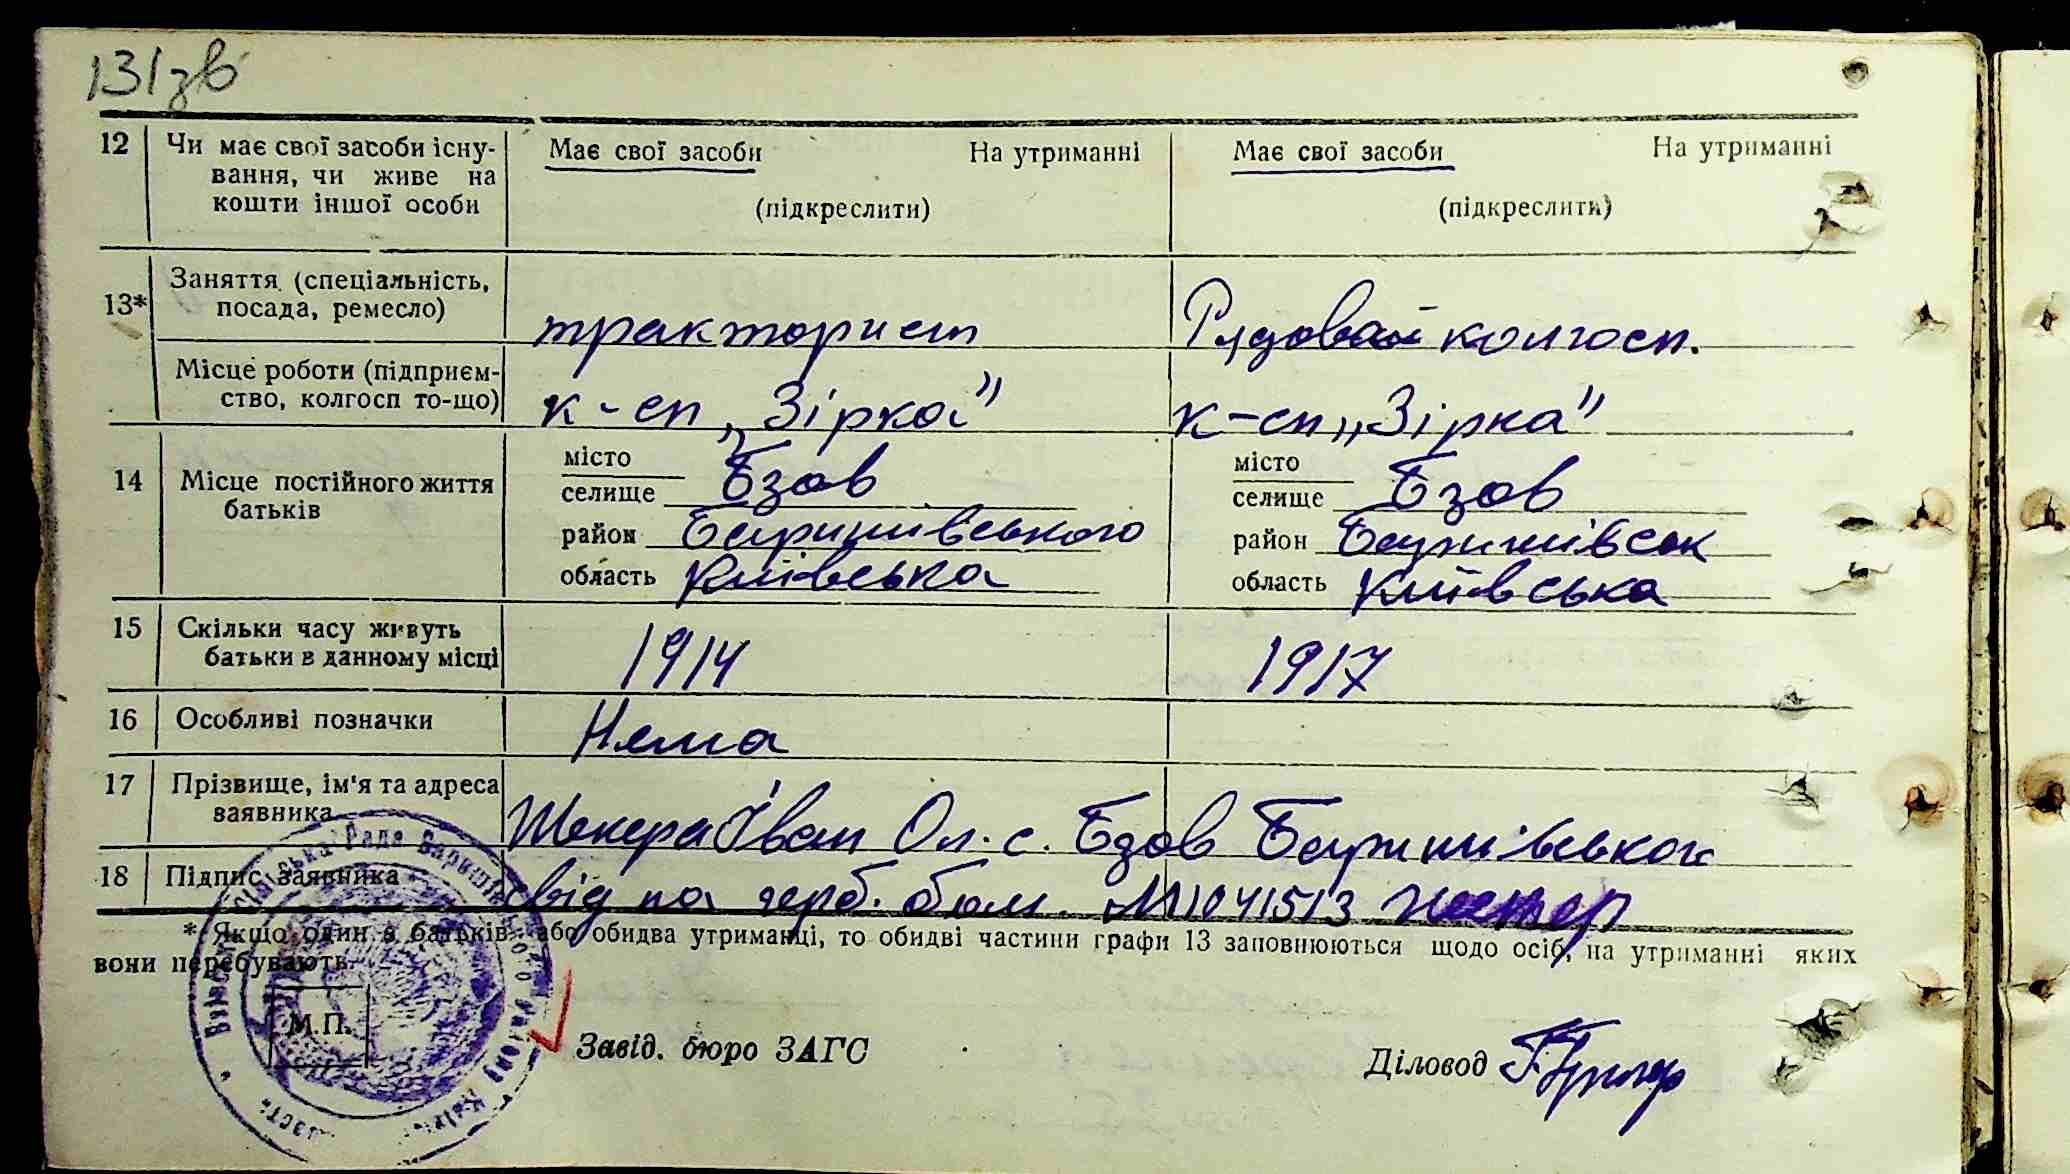 131зв
12 Чи має свої засоби існу- Має свої засоби На утриманні Має свої засоби На утриманні
вання, чи живе на
кошти іншої особи (підкреслити) (підкреслити)
13* Заняття (спеціальність,
посада, ремесло) тракторист Рядовай колгосп.
Місце роботи (підприєм-
ство, колгосп то-що) к-сп „Зірка" к-сп „Зірка"
14 Місце постійного життя
батьків
місто місто
селище Бзов селище Бзов
район Баришівського район Баришівськ
область Київська область Київська
15 Скільки часу живуть
батьки в данному місці 1914 1917
16 Особливі позначки Нема
17 Прізвище, ім'я та адреса
заявника Шекера Іван Ол. с. Бзов Баришівського
18 Підпис заявника свід на герб. бум. 1041513
* Якщо один з батьків або обидва утриманці, то обидві частини графи 13 заповнюються щодо осіб, на утриманні яких
вони перебувають.
Рада Баришівського району
М.П.
Завід. бюро ЗАГС Діловод